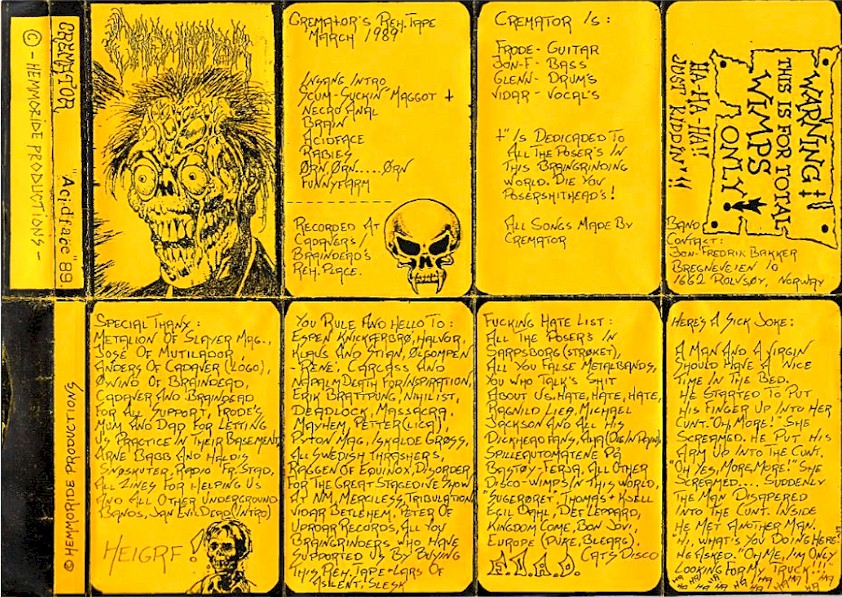 © - HEMMORIDE PRODUCTIONS -
CREMATOR "Acidface" 89
CREMATOR
CREMATOR'S REH. TAPE
MARCH 1989
INSANE INTRO
SCUM-SUCKIN' MAGGOT +
NECRO ANAL
BRAIN
ACIDFACE
RABIES
ØRN ØRN.....ØRN
FUNNYFARM
RECORDED AT
CADAVER'S /
BRAINDEAD'S
REH. PLACE.
CREMATOR IS:
FRODE - GUITAR
JON-F - BASS
GLENN - DRUM'S
VIDAR - VOCAL'S
+" IS DEDICADED TO
ALL THE POSER'S IN
THIS BRAINGRINDING
WORLD. DIE YOU
POSERSHITHEAD'S!
ALL SONGS MADE BY
CREMATOR
WARNING!
THIS IS FOR TOTAL
WIMPS
ONLY!
HA-HA-HA!!
JUST KIDDIN"!!
BAND
CONTACT:
JON-FREDRIK BAKKER
BREGNEVEIEN 10
1662 ROLVSØY, NORWAY
© HEMMORIDE PRODUCTIONS
SPECIAL THANX:
METALION OF SLAYER MAG.,
JOSÈ OF MUTILADOR
ANDERS OF CADAVER (LOGO),
ØWIND OF BRAINDEAD,
CADAVER AND BRAINDEAD
FOR ALL SUPPORT, FRODE'S
MUM AND DAD FOR LETTING
US PRACTICE IN THEIR BASEMENT,
ARNE BABB AND HALDIS
SNØSKUTER, RADIO FR.STAD,
ALL ZINES FOR HELPING US
AND ALL OTHER UNDERGROUND
BANDS, JAN EVIL DEAD (INTRO)
HEIGRF!
YOU RULE AND HELLO TO:
ESPEN KNICKERBRØ, HALVOR,
KLAUS AND STIAN, ØLGOMPEN
-RENÈ, CARCASS AND
NAPALM DEATH FOR INSPIRATION,
ERIK BRATTPUNG, NIHILIST,
DEADLOCK, MASSACRA,
MAYHEM, PETTER (LICA),
PISTON MAG, ISKALDE GRØSS,
ALL SWEDISH THRASHERS,
RAGGEN OF EQUINOX, DISORDER
FOR THE GREAT STAGEDIVE SHOW
AT NM, MERCILESS, TRIBULATION
VIDAR BETLEHEM, PETER OF
UPROAR RECORDS, ALL YOU
BRAINGRINDERS WHO HAVE
SUPPORTED US BY BUYING
THIS REH. TAPE + LARS OF
ASILENT, SLESK
FUCKING HATE LIST:
ALL THE POSER'S IN
SARPSBORG (STRØKET),
ALL YOU FALSE METALBANDS,
YOU WHO TALK'S SHIT
ABOUT US, HATE, HATE, HATE,
RAGNILD LIEA, MICHAEL
JACKSON AND ALL HIS
DICKHEAD FANS, AHA (DIE IN PAIN),
SPILLEAUTOMATENE PÅ
BASTØY-FERJA, ALL OTHER
DISCO-WIMPS IN THIS WORLD,
"SUGERØRET", THOMAS + KJELL
EGIL DAHL, DEF LEPPARD,
KINGDOM COME, BON JOVI,
EUROPE (PUKE, BLEARG).
CATS DISCO
F.O.A.D.
HERE'S A SICK JOKE:
A MAN AND A VIRGIN
SHOULD HAVE A NICE
TIME IN THE BED.
HE STARTED TO PUT
HIS FINGER UP INTO HER
CUNT. "OH, MORE!" SHE
SCREAMED. HE PUT HIS
ARM UP INTO THE CUNT.
"OH YES, MORE, MORE!" SHE
SCREAMED.... SUDDENLY
THE MAN DISAPERED
INTO THE CUNT. INSIDE
HE MET ANOTHER MAN.
"HI, WHAT'S YOU DOING HERE"
HE ASKED. "OH ME, I'M ONLY
LOOKING FOR MY TRUCK!!!"
HA HA HA HA HA HA HA HA HA